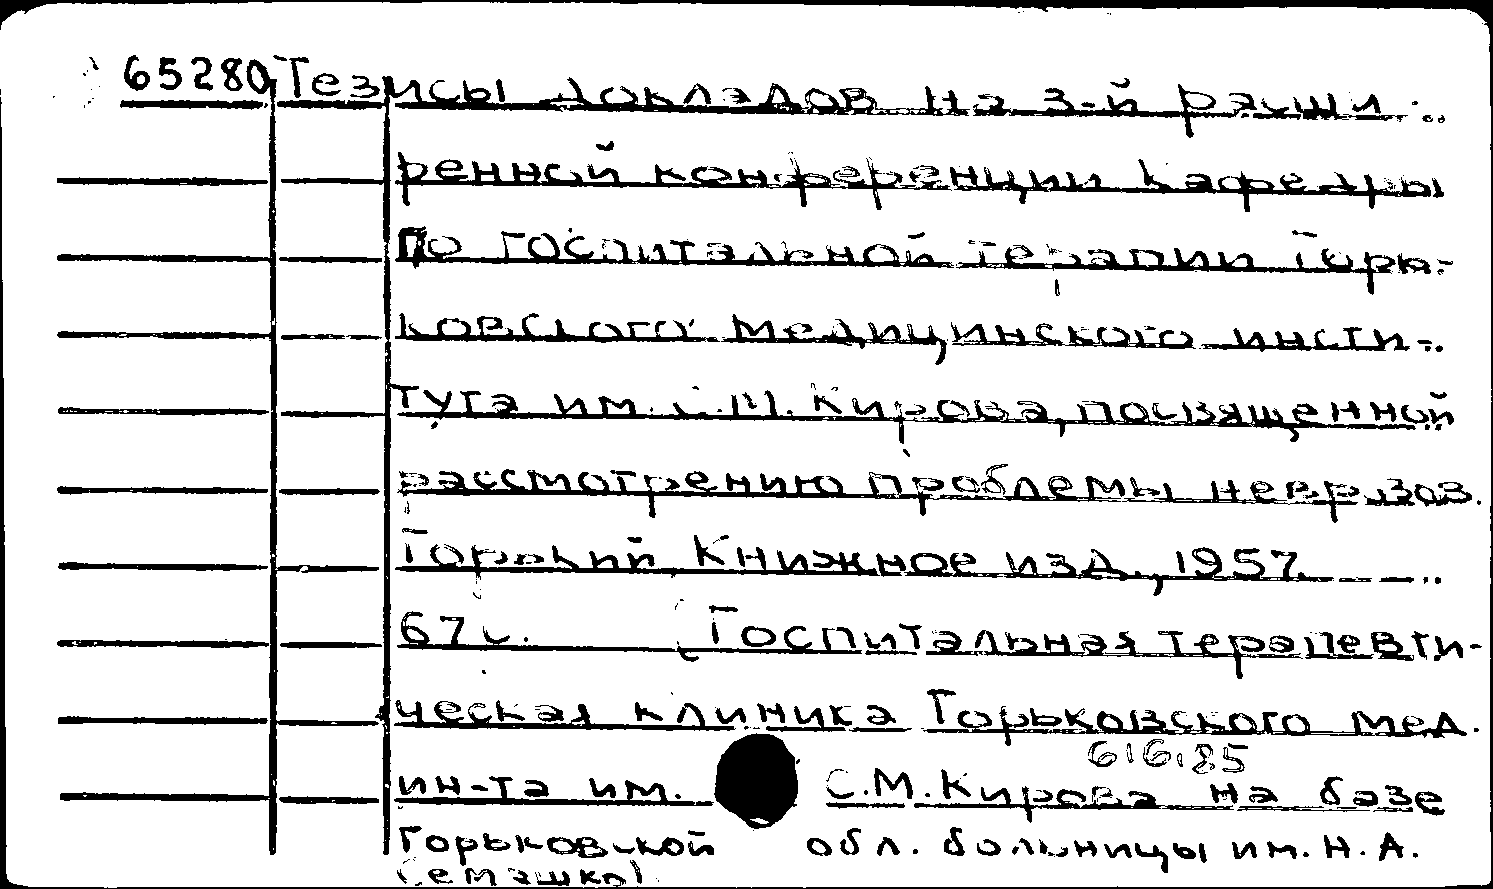 65280 Тезисы докладов на 3-й расши-
ренной конференции кафедры
по госпитальной терапии Горь-
ковского медицинского инсти-
тута им. С.М. Кирова, посвященной
рассмотрению проблемы неврозов.
Горький, Книжное изд., 1957.
67 с. (Госпитальная терапевти-
ческая клиника Горьковского мед.
616.85
ин-та им. С.М. Кирова на базе
Горьковской обл. больницы им. Н.А.
Семашко)